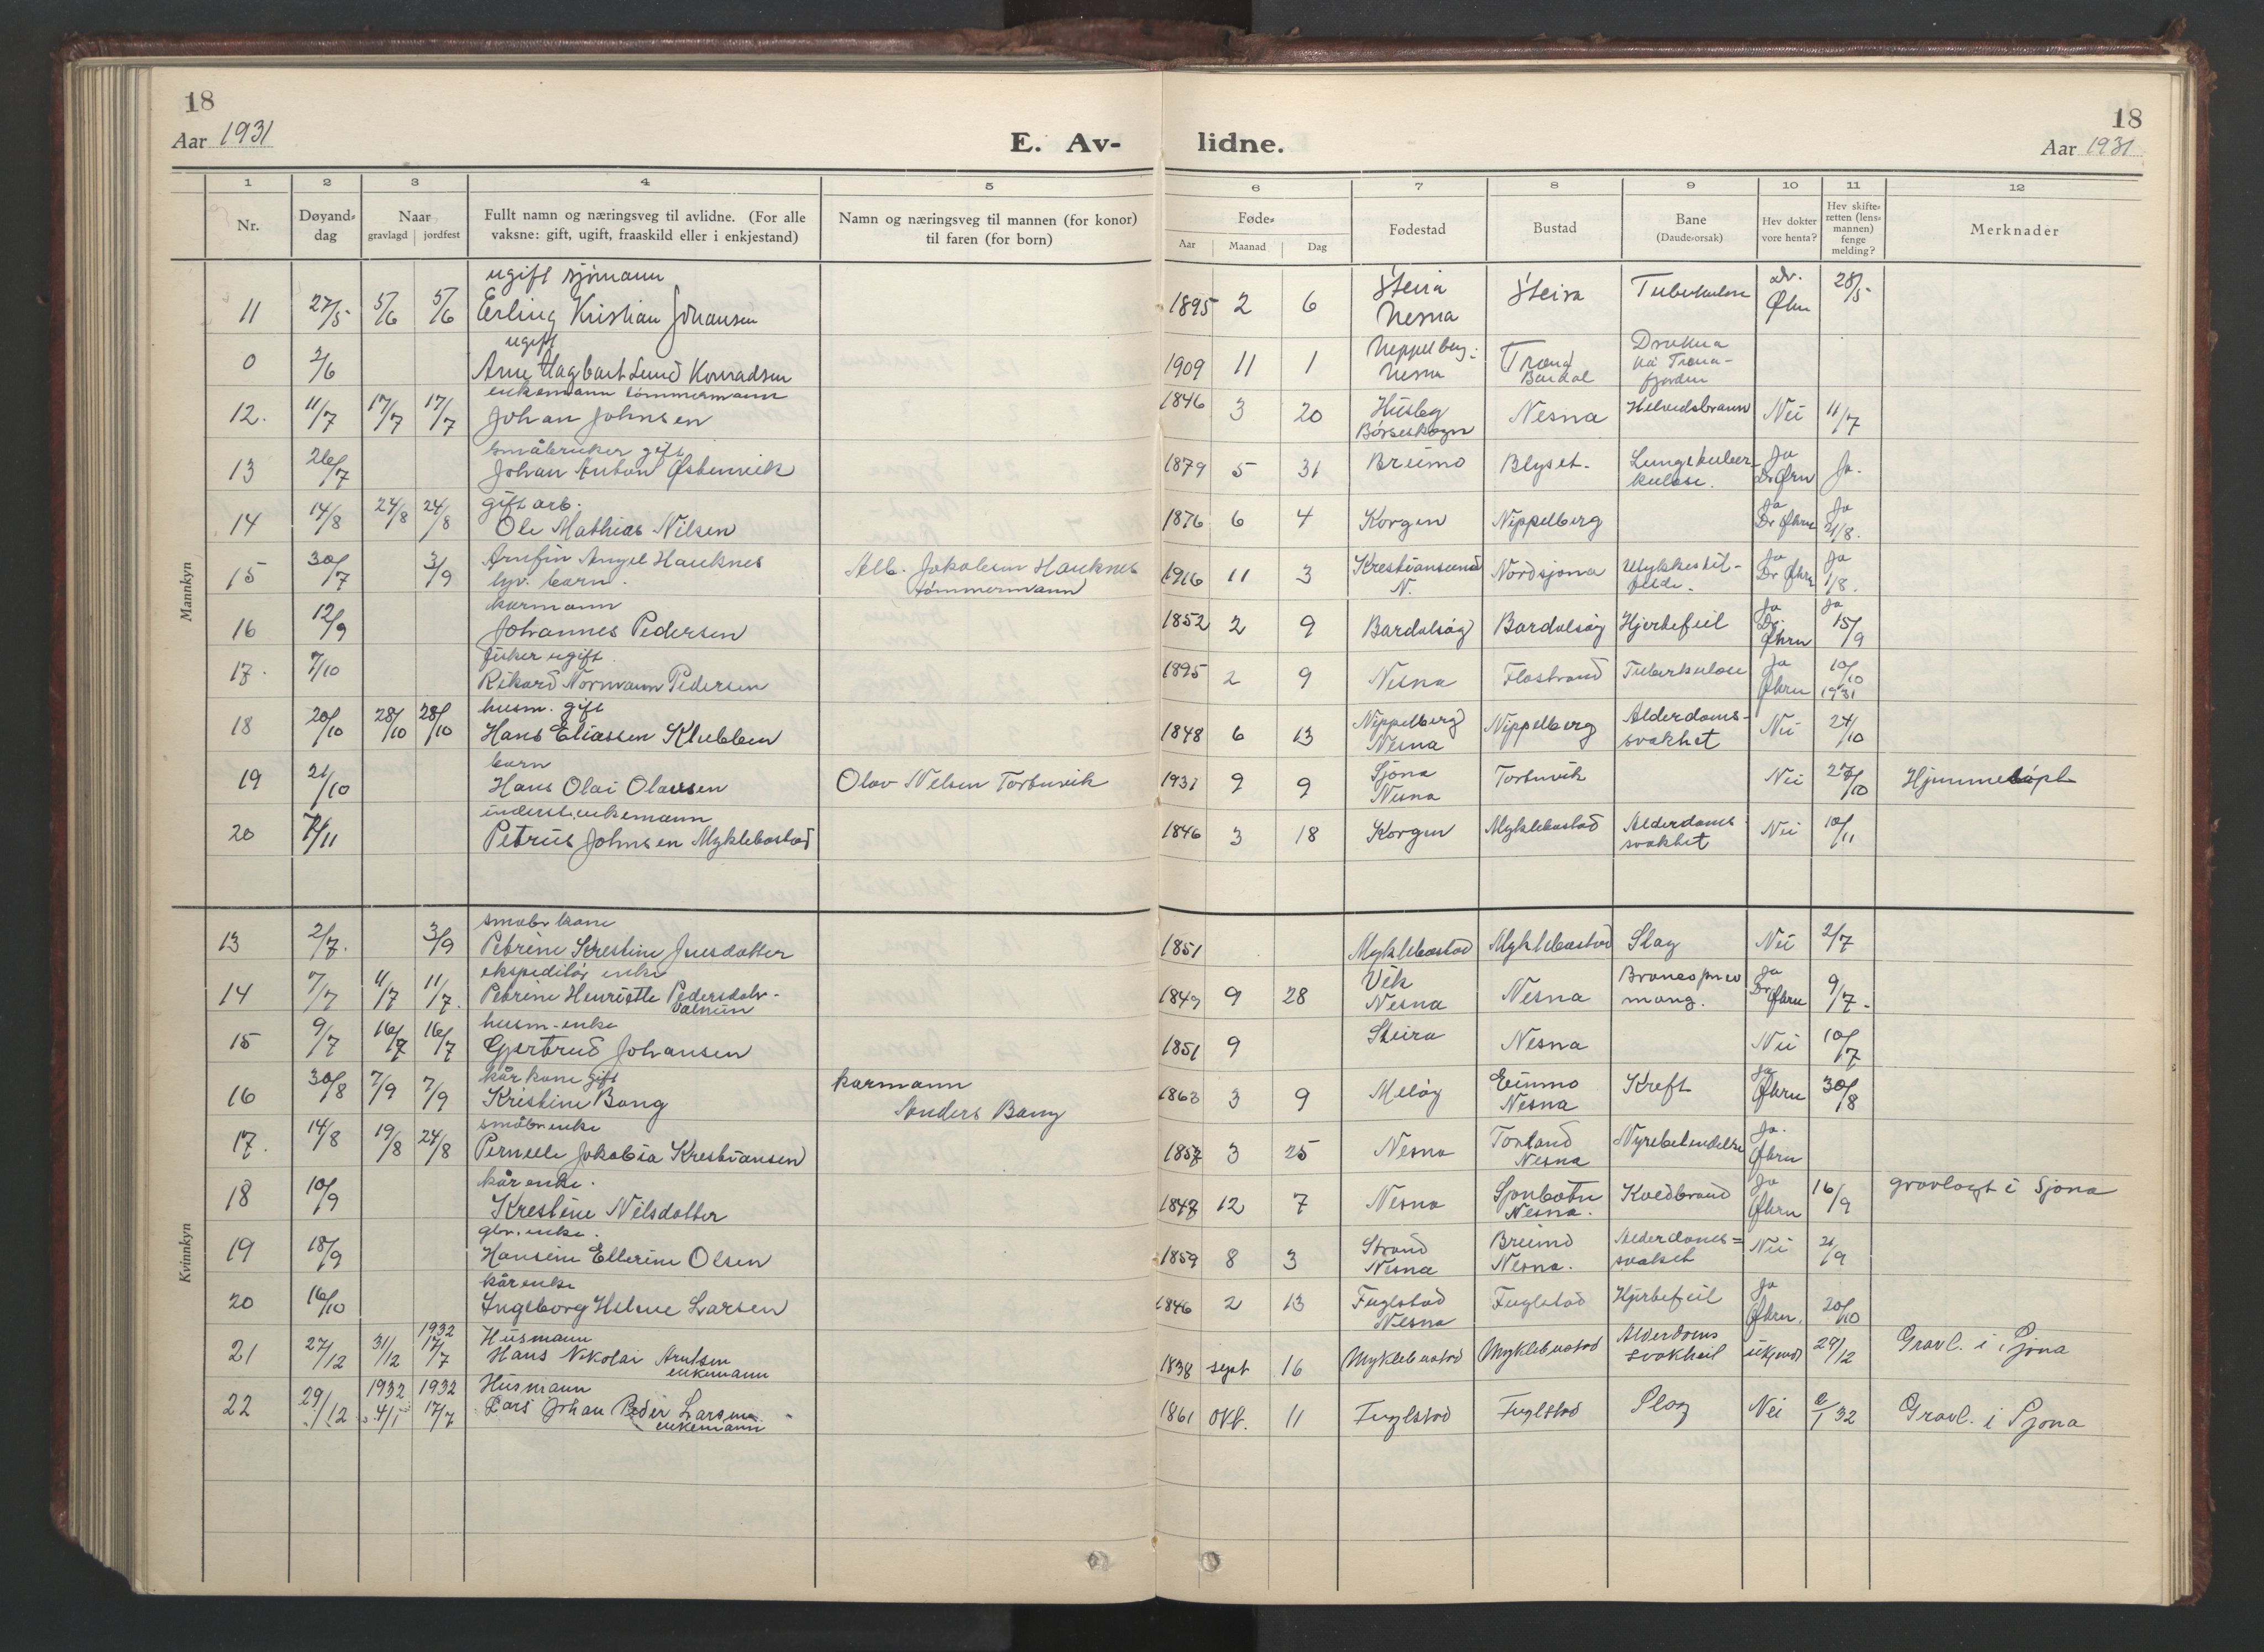 18
18
Aar 1931
E. Av-
lidne.
Aar 1931
1 2 3 4 5 6 7 8 9 10 11 12
Nr.
Døyand-dag
Naar
gravlagd jordfest
Fullt namn og næringsveg til avlidne. (For alle
vaksne: gift, ugift, fraaskild eller i enkjestand)
Namn og næringsveg til mannen (for konor)
til faren (for born)
Føde-
Aar Maanad Dag
Fødestad
Bustad
Bane
(Daude-orsak)
Hev dokter
vore henta?
Hev skifte-
retten (lens-
mannen)
fenge
melding?
Merknader
Mannkyn
ugift sjömann
11 27/5 5/6 5/6 Erling Kristian Johansen 1895 2 6 Steira Nesna Steira Tuberkulose Dr. Øhrn 28/5
ugift
0 2/6 Arne Hagbart Lund Konradsen 1909 11 1 Neppelberg Nesna Træna Bardal Drukna på Træna-fjorden
enkemann tömmermann
12. 11/7 17/7 17/7 Johan Johnsen 1846 3 20 Husby Børseskogn Nesna Nei 11/7
småbruker gift
13 26/7 Johan Anton Østenvik 1879 5 31 Breimo Blyset. Lungetuber-kulose. Ja Dr Øhrn Ja.
gift arb.
14 14/8 24/8 24/8 Ole Mathias Nilsen 1876 6 4 Korgen Nippelberg Ja Dr Øhrn Ja 21/8.
15 30/7 3/9 Arnfin Angel Hauknes Alb. Jakobsen Hauknes 1916 11 3 Krestiansund N. Nordsjona Ulykkestil-felde. Ja Dr Øhrn Ja 1/8.
born. tömmermann
karmann
16 12/9 Johannes Pedersen 1852 2 9 Bardalsøg Bardalsøg Hjertefeil Ja Dr. Øhrn Ja 15/9
fisker ugift.
17. 7/10 Rikard Normann Pedersen 1895 2 9 Nesna Flostrand Tuberkulose Ja Øhrn 10/10 1931
husm. gift
18 20/10 28/10 28/10 Hans Eliassen Klubben 1848 6 13 Nippelberg Nesna Nippelberg Alderdoms-svakhet Nei 24/10
barn
19 21/10 Hans Olai Olausen Olav Nelsen Torbuvik 1931 9 9 Sjona Nesna Torbuvik Nei 27/10 Hjemmedöpt
inderst. enkemann
20 7/11 Petrus Johnsen Myklebostad 1846 3 18 Korgen Myklebostad Alderdoms svakhet Nei 10/11
Kvinnkyn
småbr kone
13 2/7. 3/9 Petrine Krestine Jensdatter 1851 Myklebostad Myklebostad Slag Nei 2/7
ekspeditör enke
14 7/7 11/7 11/7. Petrine Henriette Pedersdatr. 1849 9 28 Vik Nesna Nesna Ja Dr Øhrn 9/7
husm-enke
15 9/7 16/7 16/7 Gjertrud Johansen 1851 9 Steira Nesna Nei 10/7
kårkone gift
16 30/8 7/9 7/9 Kristine Bang karmann Anders Bang 1863 3 9 Meløy Einmo Nesna Kreft Ja Øhrn 30/8
småbrenke
17. 14/8 19/8 24/8 Pernele Jakobia Krestiansen 1857 3 25 Nesna Torland Nesna Nyrebetendelse Ja. Øhrn
kårenke.
18 10/9 Krestine Nilsdatter 1847 12 7 Nesna Sjonbotn Nesna. Koldbrand Ja Øhrn 16/9 gravlagt i Sjona
gbr. enke.
19 18/9 Hansine Ellerine Olsen 1859 8 3 Strand Nesna Breimo Nesna. Alderdoms= svakhet Nei 21/9
kårenke
20 16/10 Ingeborg Helene Larsen 1846 2 13 Fuglstad Nesna Fuglstad Hjertefeil Ja Øhrn. 20/10
1932 Husmann
21 27/12 31/12 17/7 Hans Nikolai Arntsen 1838 sept 16 Myklebustad Myklebustad Alderdoms svakheit 29/12 Gravl. i Sjona
enkemann
1932 1932 Husmann
22 29/12 4/1 17/7 Lars Johan Peder Larsen 1861 okt. 11 Fuglstad Fuglstad Slag Nei 6/1 32 Gravl. i Sjona
enkemann